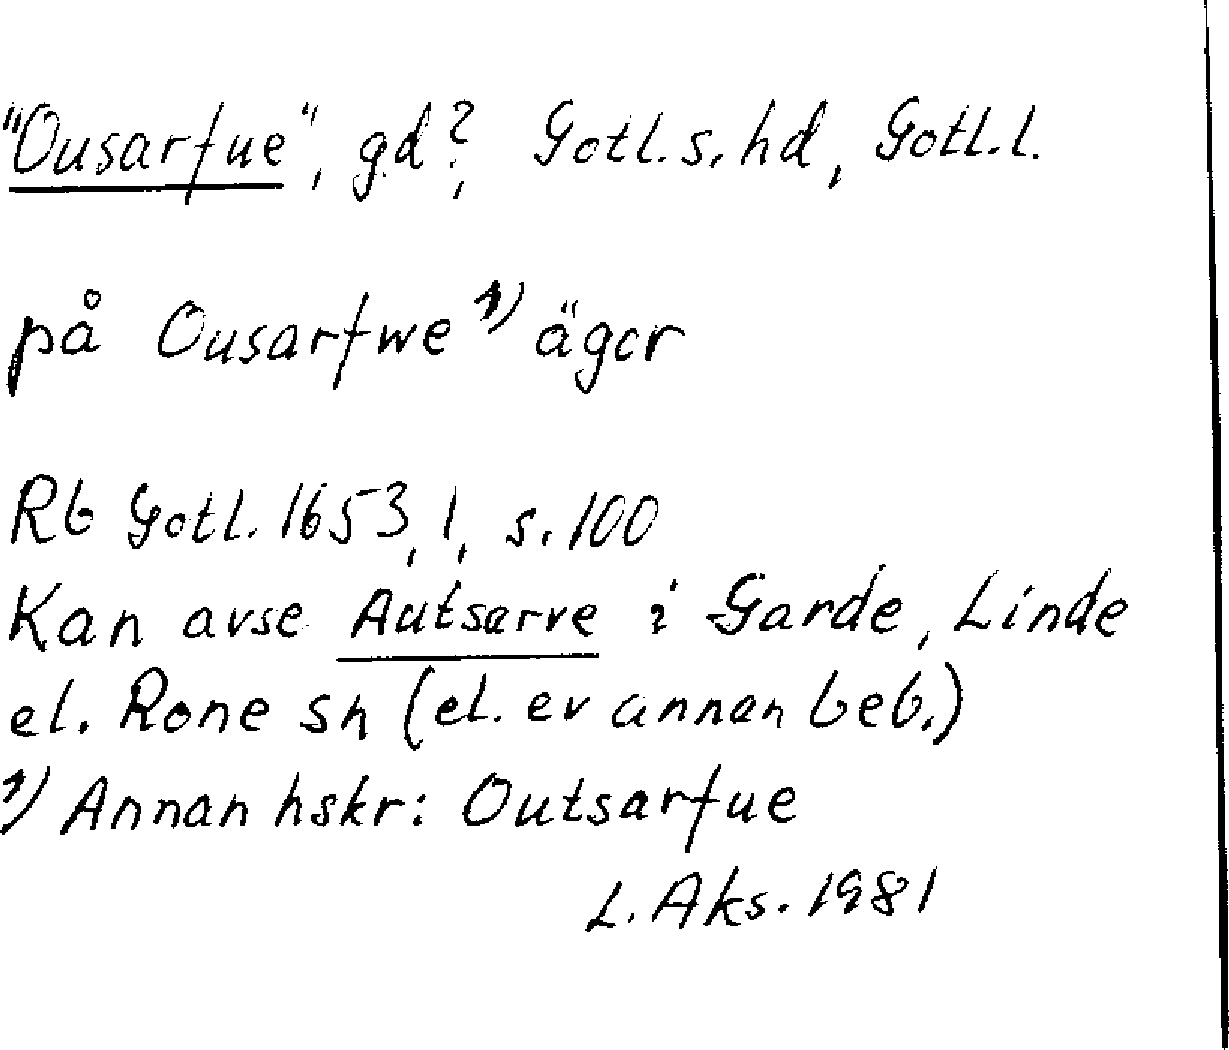 "Ousarfue", gd?, Gotl. s. hd, Gotl. l.
på Ousarfwe 1) ägor
Rb Gotl. 1653, 1, s. 100
Kan avse Autsarve i Garde, Linde
el. Rone sn (el. ev annan beb.)
1) Annan hskr: Outsarfue
L. Aks. 1981